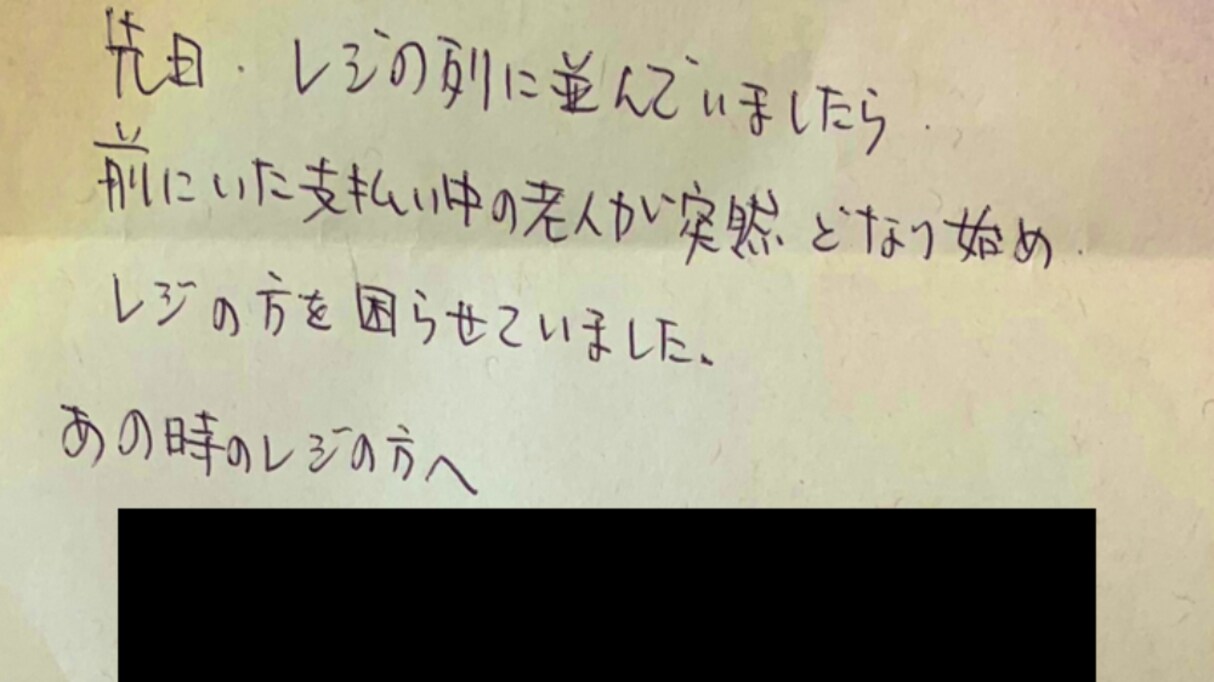 先日、レジの列に並んでいましたら、
前にいた支払い中の老人が突然どなり始め、
レジの方を困らせていました。
あの時のレジの方へ